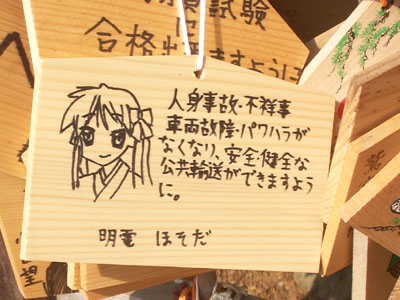 試験
合格出来ますように
人身事故・不祥事
車両故障・パワハラが
なくなり、安全・健全な
公共輸送ができますよう
に。
明電 ほそだ